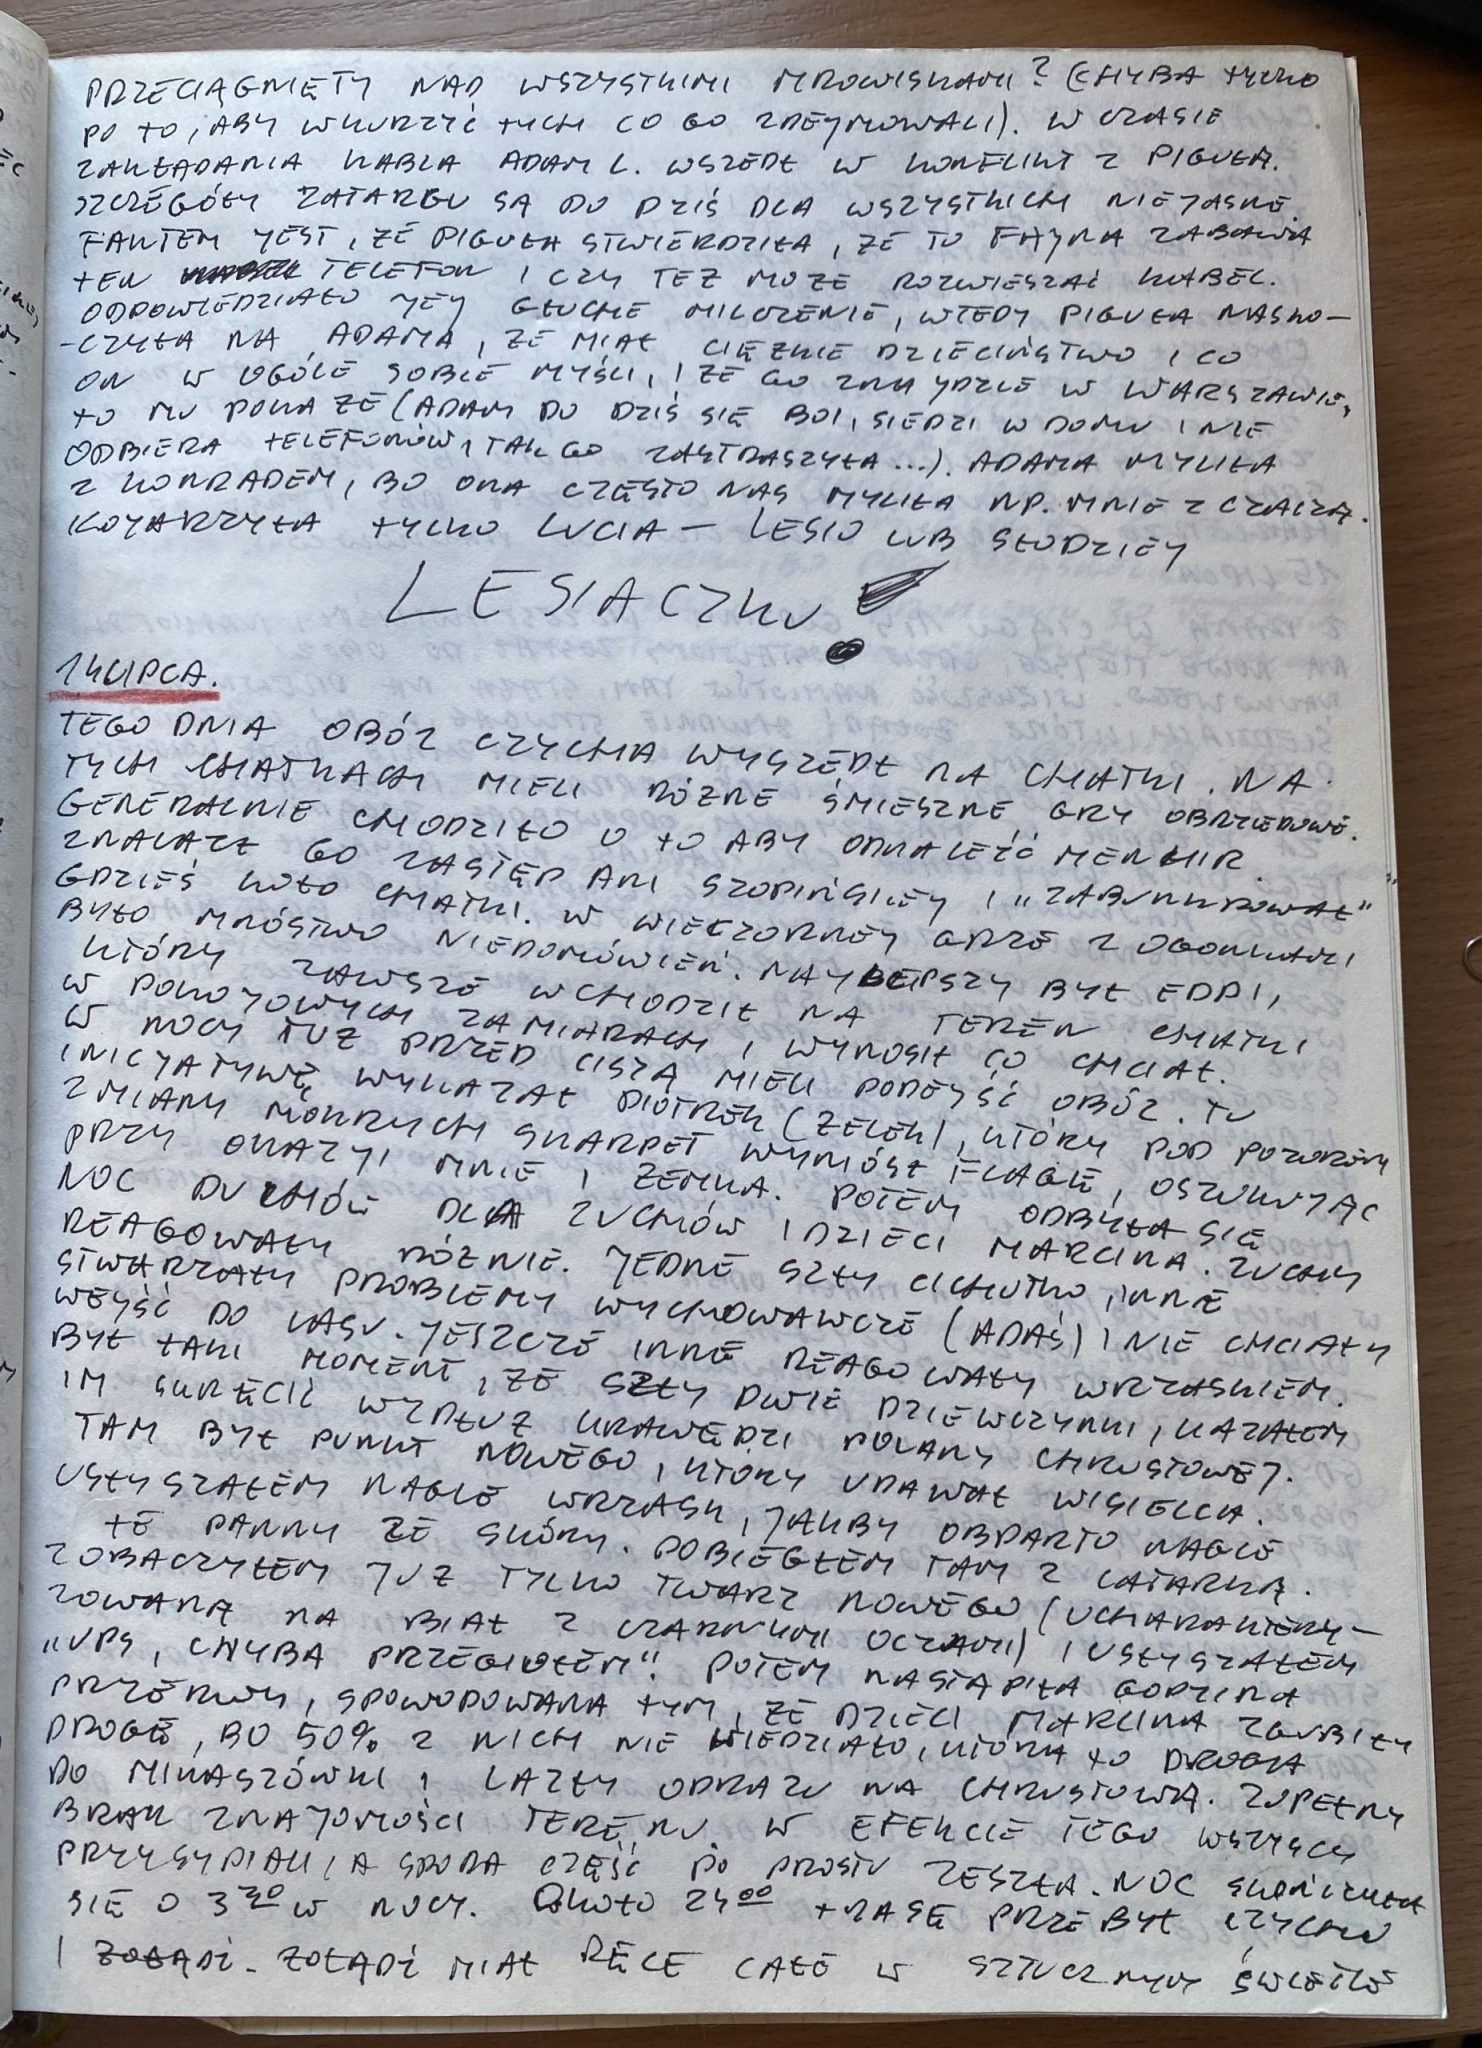 PRZECIĄGNIĘTY NAD WSZYSTKIMI MROWISKAMI? (CHYBA TYLKO
PO TO, ABY WKURZYĆ TYCH CO GO ZDEJMOWALI). W CZASIE
ZAKŁADANIA KABLA ADAM L. WSZEDŁ W KONFLIKT Z PIGUŁĄ.
SZCZEGÓŁY ZATARGU SĄ DO DZIŚ DLA WSZYSTKICH NIEJASNE.
FAKTEM JEST, ŻE PIGUŁA STWIERDZIŁA, ŻE TO FAJNA ZABAWA
TEN TELEFON I CZY TEŻ MOŻE ROZWIESZAĆ KABEL.
ODPOWIEDZIAŁO JEJ GŁUCHE MILCZENIE, WTEDY PIGUŁA NASKO-
-CZYŁA NA ADAMA, ŻE MIAŁ CIĘŻKIE DZIECIŃSTWO I CO
ON W OGÓLE SOBIE MYŚLI, I ŻE GO ZNAJDZIE W WARSZAWIE,
TO MU POKAŻE (ADAM DO DZIŚ SIĘ BOI, SIEDZI W DOMU I NIE
ODBIERA TELEFONÓW, TAK GO ZASTRASZYŁA...). ADAMA MYLIŁA
Z KONRADEM, BO ONA CZĘSTO NAS MYLIŁA NP. MNIE Z CZACZĄ.
KOJARZYŁA TYLKO LUCIA – LESIO LUB SŁODZIEJ
LESIACZKU!
14 LIPCA.
TEGO DNIA OBÓZ CZYCHA WYSZEDŁ NA CHATKI. NA
TYCH CHATKACH MIELI RÓŻNE ŚMIESZNE GRY OBRZĘDOWE.
GENERALNIE CHODZIŁO O TO ABY ODNALEŹĆ MENHIR.
ZNALAZŁ GO ZASTĘP ANI SZOPIŃSKIEJ I „ZABUNKROWAŁ"
GDZIEŚ KOŁO CHATKI. W WIECZORNEJ GRZE Z OGONKAMI
BYŁO MNÓSTWO NIEDOMÓWIEŃ. NAJLEPSZY BYŁ EDDI,
KTÓRY ZAWSZE WCHODZIŁ NA TEREN CHATKI
W POKOJOWYCH ZAMIARACH I WYNOSIŁ CO CHCIAŁ.
W NOCY TUŻ PRZED CISZĄ MIELI PODEJŚĆ OBÓZ. TU
INICJATYWĘ WYKAZAŁ PIOTREK (ZELEK), KTÓRY POD POZOREM
ZMIANY MOKRYCH SKARPET WYNIÓSŁ FLAGĘ, OSZUKUJĄC
PRZY OKAZJI MNIE I ZEMKA. POTEM ODBYŁA SIĘ
NOC DUCHÓW DLA ZUCHÓW I DZIECI MARCINA. ZUCHY
REAGOWAŁY RÓŻNIE. JEDNE SZŁY CICHUTKO, INNE
STWARZAŁY PROBLEMY WYCHOWAWCZE (ADAŚ) I NIE CHCIAŁY
WEJŚĆ DO LASU. JESZCZE INNE REAGOWAŁY WRZASKIEM.
BYŁ TAKI MOMENT, ŻE SZŁY DWIE DZIEWCZYNKI, KAZAŁEM
IM SKRĘCIĆ WZDŁUŻ KRAWĘDZI POLANY CHRUSTOWEJ.
TAM BYŁ PUNKT NOWEGO, KTÓRY UDAWAŁ WISIELCA.
USŁYSZAŁEM NAGLE WRZASK, JAKBY OBDARTO NAGLE
TE PANNY ZE SKÓRY. POBIEGŁEM TAM Z LATARKĄ.
ZOBACZYŁEM JUŻ TYLKO TWARZ NOWEGO (UCHARAKTERY-
ZOWANĄ NA BIAŁ Z CZARNYMI OCZAMI) I USŁYSZAŁEM
„UPS, CHYBA PRZEGIOŁEM". POTEM NASTĄPIŁA GODZINA
PRZERWY, SPOWODOWANA TYM, ŻE DZIECI MARCINA ZGUBIŁY
DROGĘ, BO 50% Z NICH NIE WIEDZIAŁO, KTÓRA TO DROGA
DO MIKASZÓWKI I LAZŁY ODRAZU NA CHRUSTOWĄ. ZUPEŁNY
BRAK ZNAJOMOŚCI TERENU. W EFEKCIE TEGO WSZYSCY
PRZYSYPIALI, A SPORA CZĘŚĆ PO PROSTU ZESZŁA. NOC SKOŃCZYŁA
SIĘ O 3 30 W NOCY. OKOŁO 24 00 TRASĘ PRZEBYŁ CZYCHU
I ŻOŁĄDŹ. ŻOŁĄDŹ MIAŁ RĘCE CAŁE W SZTUCZNYM ŚWIETLE